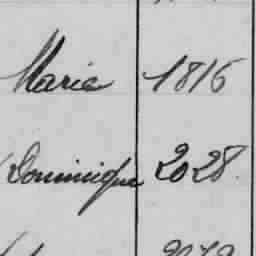 Marie 1816
Dominique 2028.